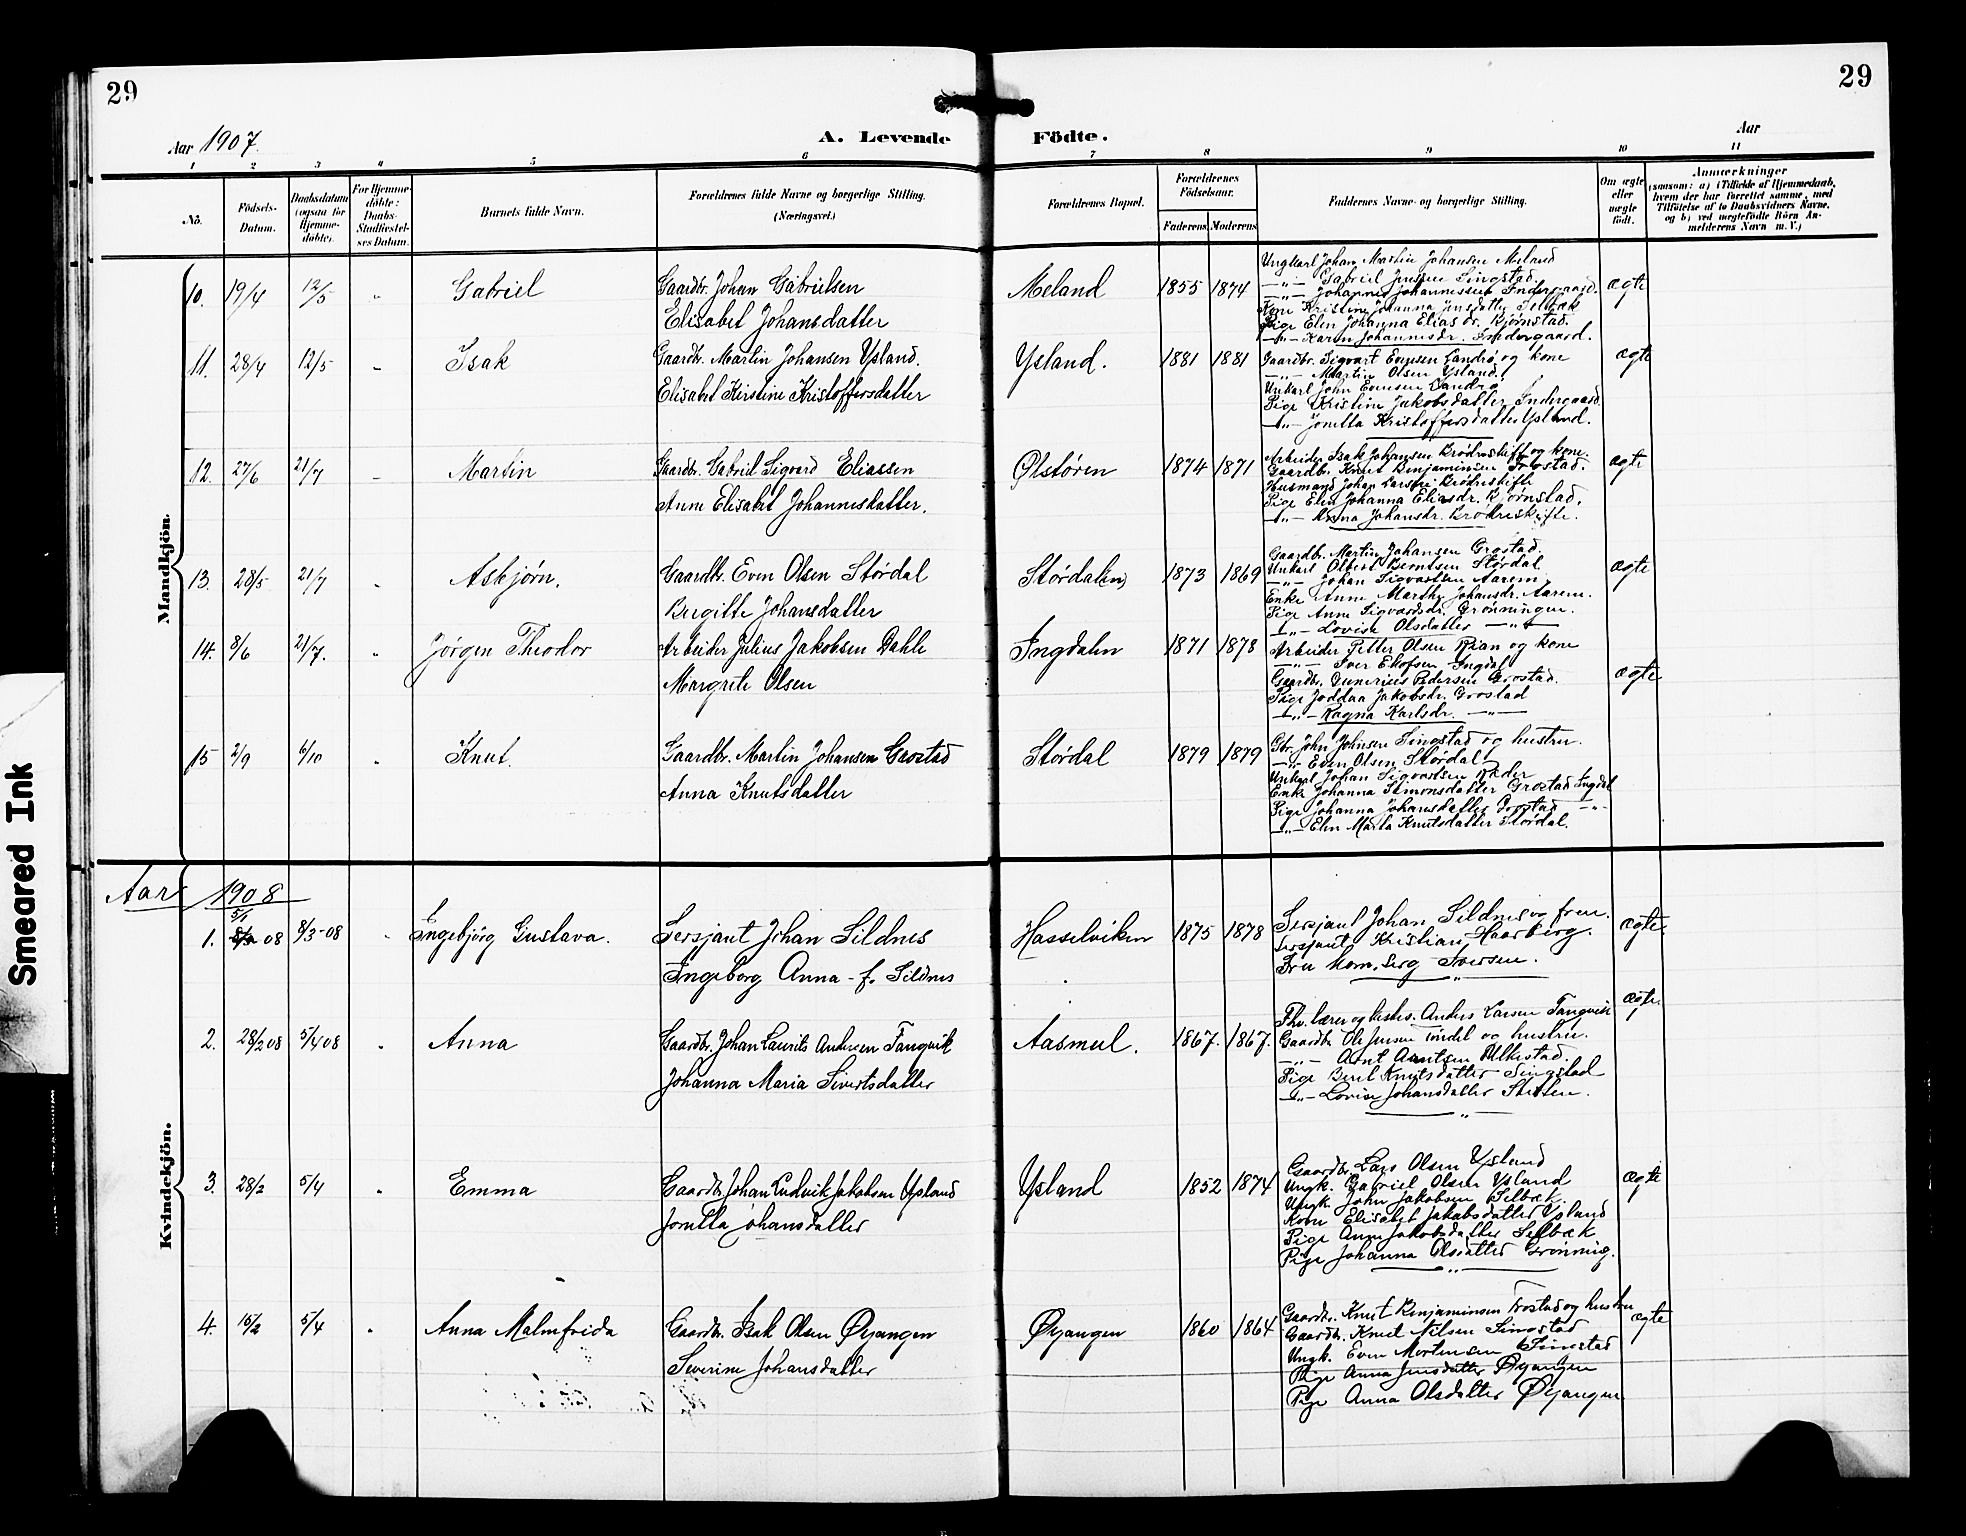 29
29
Aar 1907.
A. Levende Födte.
Aar
1 2 3 4 5 6 7 8 9 10 11
No.
Födsels-Datum.
Daabsdatum (ogsaa for Hjemme-döbte).
For Hjemme-döbte: Daabs-Stadfæstel-ses Datum.
Barnets fulde Navn.
Forældrenes fulde Navne og borgerlige Stilling. (Næringsvei.)
Forældrenes Bopæl.
Forældrenes Födselsaar.
Faderens Moderens
Faddernes Navne og borgerlige Stilling.
Om ægte eller uægte födt.
Anmærkninger
(saasom: a) i Tilfælde af Hjemmedaab, hvem der har forrettet samme, med Tilföielse af to Daabsvidners Navne, og b) ved uægtefödte Börn An-melderens Navn m. V.)
Mandkjön.
10. 19/4 12/5 " Gabriel
Gaardbr. Johan Gabrielsen
Elisabet Johansdatter
Meland 1855 1874
Ungkarl Johan Martin Johansen Meland
—"— Gabriel Jensen Singstad
—"— Johannes Johannessen Indergaard.
Kone Kristine Johanna Jensdatter Selbæk
Pige Elen Johanna Elias dr. Bjørnstad.
—"— Karen Johannesdr. Indergaard.
ægte
11. 28/4 12/5 " Isak
Gaardbr. Martin Johansen Ysland.
Elisabet Kirstine Kristoffersdatter
Ysland. 1881 1881
Gaardbr. Sigvart Evensen Landrø og kone
—"— Martin Olsen Ysland.
Unkarl John Evensen Landrø
Pige Kristine Jakobsdatter Indergaard
—"— Jonetta Kristoffersdatter Ysland.
ægte
12. 27/6 21/7 " Martin
Gaardbr. Gabriel Sigvard Eliassen
Anne Elisabet Johannesdatter.
Ølstøren 1874 1871
Arbeider Isak Johansen Brødreskift og kone.
Gaardbr. Knut Benjaminsen Trostad.
Husmand Johan Larsen Brødreskifte
Pige Elen Johanna Eliasdr. Bjørnstad.
—"— Anna Johansdr. Brødreskifte.
ægte
13. 28/5 21/7 " Asbjørn.
Gaardbr. Even Olsen Størdal
Bergitte Johansdatter
Størdalen 1873 1869
Gaardbr. Martin Johansen Grostad.
Unkarl Olbert Berntsen Størdal
—"— Johan Sigvartsen Aarem
Enke Anne Marthe Johansdr. Aarem.
Pige Anne Sigvardsdr. Grønningen.
—"— Lovise Olsdatter —"—
ægte
14. 8/6 21/7. " Jørgen Theodor
Arbeider Julius Jakobsen Dahle
Margrete Olsen
Ingdalen 1871 1878
Arbeider Petter Olsen Rian og kone
—"— Iver Elofsen Ingdal
Gaardbr. Gunerius Pedersen Grostad.
Pige Joddaa Jakobsdr. Grostad
—"— Ragna Karlsdr. —"—
ægte
15 2/9 6/10 " Knut.
Gaardbr. Martin Johansen Grostad
Anna Knutsdatter
Størdal 1879 1879
Gbr. John Johnsen Singstad og hustru.
—"— Even Olsen Størdal
Unkarl Johan Sigvartsen
Enke Johanna Simonsdatter Grostad Ingdal
Pige Johanna Johansdatter Grostad —"—
—"— Elen Marta Knutsdatter Størdal.
Aar 1908
Kvindekjön.
1. 5/1 08 8/3-08 " Ingebjørg Gustava.
Sersjant Johan Sildnes
Ingeborg Anna f. Sildnes
Hasselviken 1875 1878
Sersjant Johan Sildnes og frue.
Sersjant Kristian Haarberg.
Fru kom. serg Iversen.
ægte
2. 28/2 08 5/4 08 " Anna
Gaardbr. Johan Laurits Andersen Tangvik
Johanna Maria Sivertsdatter
Aasmul. 1867. 1867.
Fhv. lærer og kirkes. Anders Larsen Tangvik
Gaardbr Ole Jensen Tindel og hustru.
—"— Arnt Arntsen Ulkestad.
Pige Beret Knutsdatter Singstad
—"— Lovise Johansdatter Stetsen.
ægte.
3. 28/2 5/4 " Emma
Gaardbr. Johan Ludvik Jakobsen Ysland
Jonetta Johansdatter
Ysland 1852 1874
Gaardbr. Lars Olsen Ysland
Ungk. Gabriel Olsen Ysland
Ungk. John Jakobsen Selbæk
Kone Elisabet Jakobsdatter Ysland
Pige Anne Jakobsdatter Selbæk
Pige Johanna Olsdatter Grønning.
ægte
4. 15/2 5/4 " Anna Malmfrida
Gaardbr. Isak Olsen Øyangen
Severine Johansdatter
Øyangen 1860 1864
Gaardbr. Knut Benjaminsen Trostad og hustru
Gaardbr. Knut Nilsen Singstad
Ungk. Even Mortensen Singstad
Pige Anna Jensdatter Øyangen
Pige Anna Olsdatter Øyangen
ægte
Smeared Ink